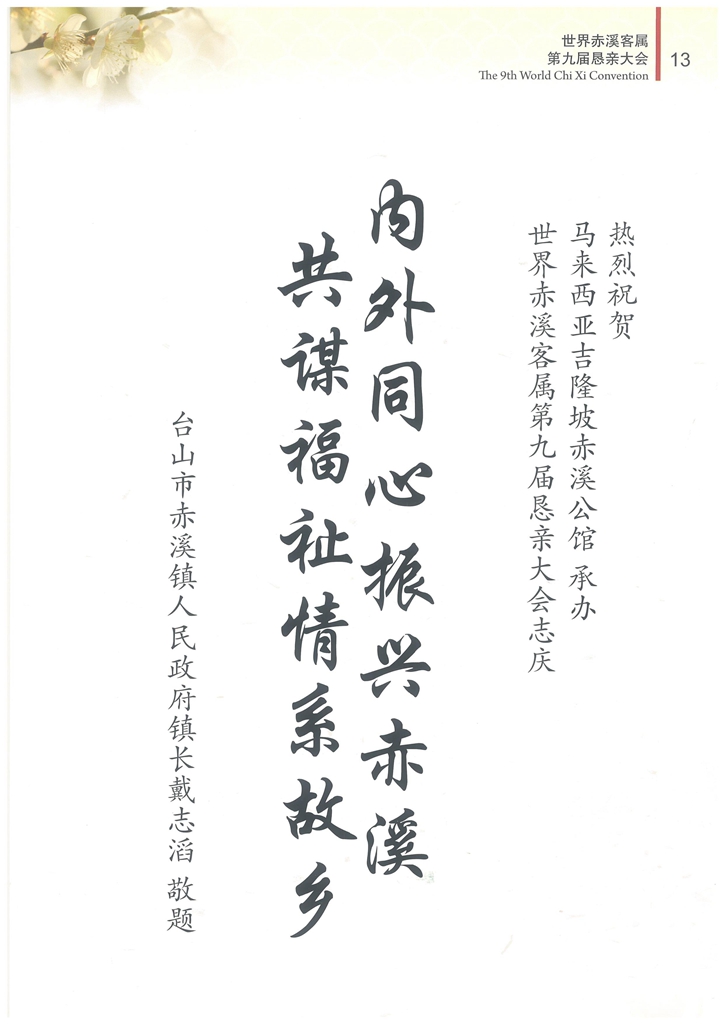 世界赤溪客属
第九届恳亲大会
The 9th World Chi Xi Convention
13
热烈祝贺
马来西亚吉隆坡赤溪公馆 承办
世界赤溪客属第九届恳亲大会志庆
内外同心振兴赤溪
共谋福祉情系故乡
台山市赤溪镇人民政府镇长戴志滔 敬题